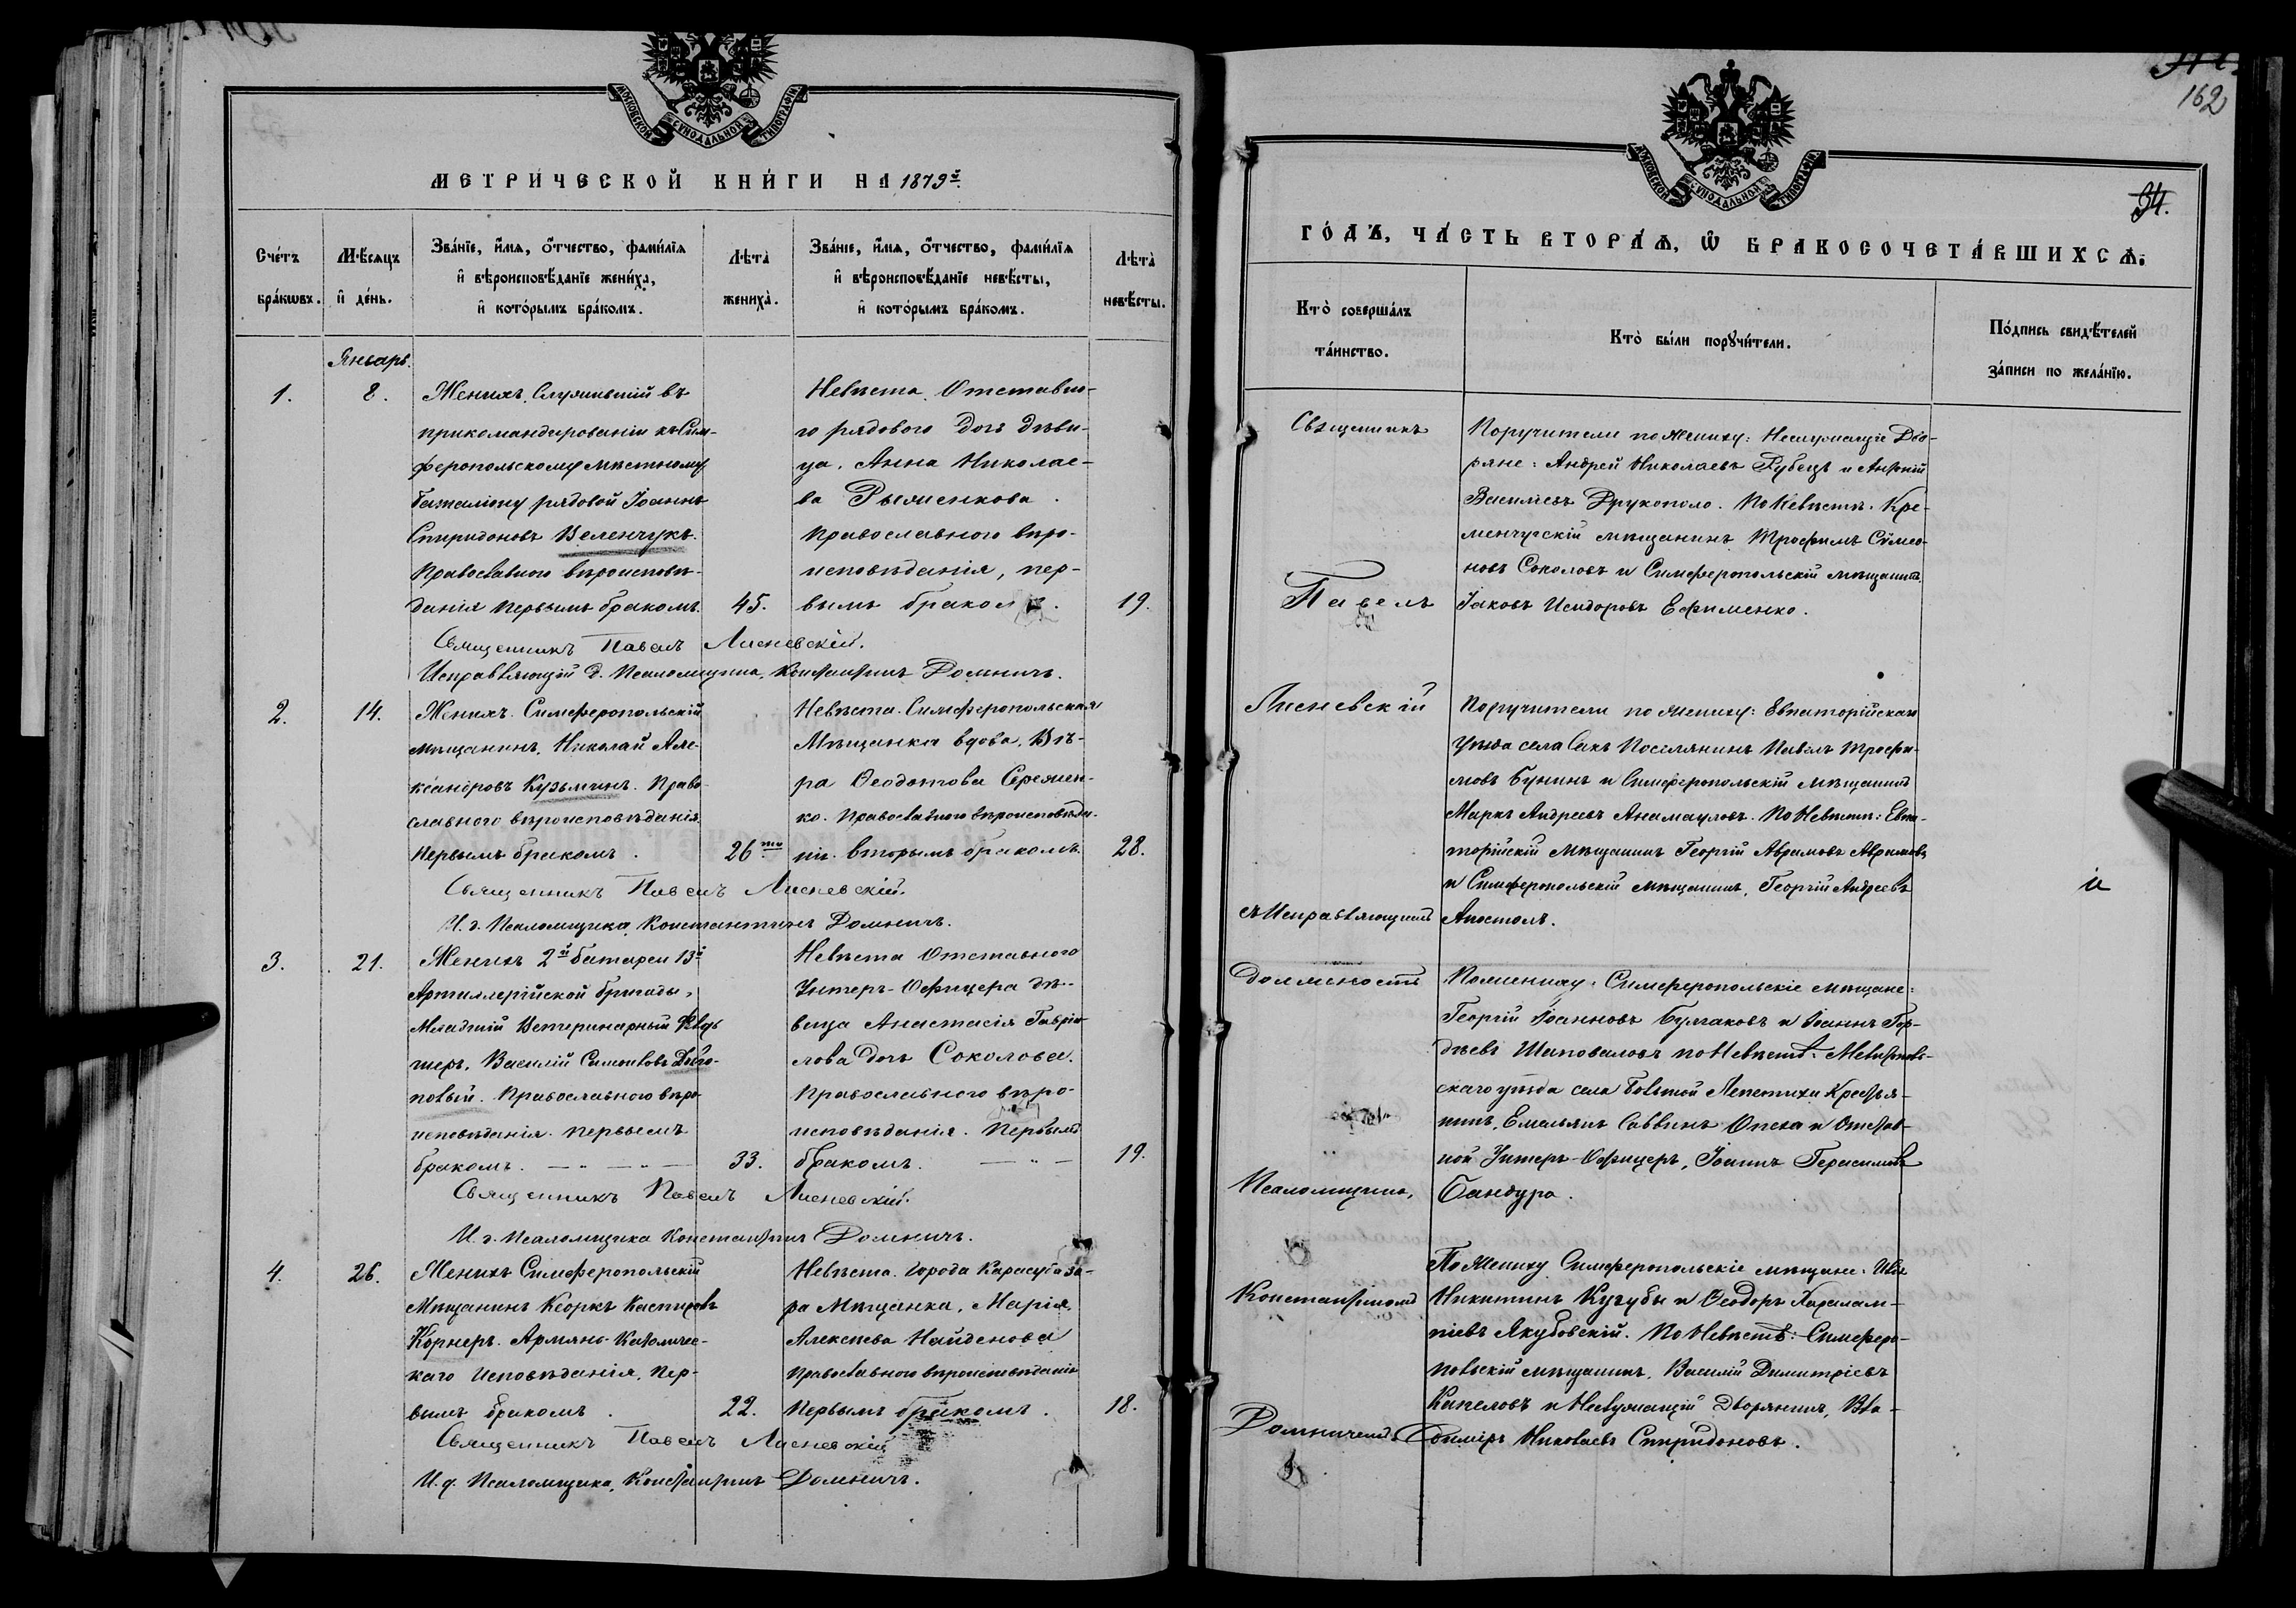 МОСКОВСКОЙ СѴНОДАЛЬНОЙ ТИПОГРАФІИ
МЕТРИ́ЧЕСКОЙ КНИ́ГИ НА 1879й
Сче́тъ бра́кѡвъ.
Мѣ́сяцъ и҆ де́нь.
Зва́нїе, и҆́мя, ѻ҆́тчество, фами́лїя
и҆ вѣроисповѣ́данїе жениха̀,
и҆ кото́рымъ бра́комъ.
Лѣта̀ жениха̀.
Зва́нїе, и҆́мя, ѻ҆́тчество, фами́лїя
и҆ вѣроисповѣ́данїе невѣ́сты,
и҆ кото́рымъ бра́комъ.
Лѣта̀ невѣ́сты.
Январь.
1.
8.
Женихъ. Служившій въ
прикомандированіи къ Сим-
феропольскому мѣстному
баталіону рядовой Іоаннъ
Спиридоновъ Веленчукъ.
Православнаго вѣроисповѣ-
данія первымъ бракомъ.
45.
Невѣста. Отставно-
го рядового дочь дѣви-
ца, Анна Николае-
ва Рыженкова.
Православного вѣро-
исповѣданія, пер-
вымъ бракомъ.
19.
Священникъ Павелъ Лисневскій.
Исправляющій д. Псаломщика, Константинъ Домничъ.
2.
14.
Женихъ. Симферопольскій
мѣщанинъ, Николай Але-
ксандровъ Кузьминъ. Право-
славного вѣроисповѣданія
первымъ бракомъ.
26ти
Невѣста. Симферопольская
Мѣщанка вдова, Вѣ-
ра Ѳеодотова Сережен-
ко. Православного вѣроисповѣда-
нія. вторымъ бракомъ.
28.
Священникъ Павелъ Лисневскій.
И. д. Псаломщика, Константинъ Домничъ.
3.
21.
Женихъ 2й батареи 13й
Артиллерійской бригады,
Младшій Ветеринарный Фельд
шеръ, Василій Симоновъ
повый. Православного вѣро-
исповѣданія. первымъ
бракомъ.
33.
Невѣста Отставного
Унтеръ-Офицера дѣ-
вица Анастасія Гаврі-
лова дочь Соколова.
Православного вѣро-
исповѣданія. Первымъ
бракомъ.
19.
Священникъ Павелъ Лисневскій.
И. д. Псаломщика Константинъ Домничъ.
4.
26.
Женихъ Симферопольскій
Мѣщанинъ Кеоркъ Каспаровъ
Корнеръ. Армяно-Католичес-
каго Исповѣданія, пер-
вымъ бракомъ.
22.
Невѣста. Города Карасубаза-
ра Мѣщанка, Марія
Алексѣева Найденова
Православного вѣроисповѣданія
Первымъ бракомъ.
18.
Священникъ Павелъ Лисневскій
И. д. Псаломщика, Константинъ Домничъ.
162
МОСКОВСКОЙ СѴНОДАЛЬНОЙ ТИПОГРАФІИ
94.
ГО́ДЪ, ЧА́СТЬ ВТОРА́Ѧ, Ѡ҆ БРАКОСОЧЕТА́ВШИХСѦ.
Кто̀ соверша́лъ та́инство.
Кто̀ бы́ли порꙋчи́тели.
По́дпись свидѣ́телей за́писи по жела́нїю.
Священникъ
Павелъ
Лисневскій
съ Исправляющимъ
Должность
Псаломщика,
Константиномъ
Домничемъ
Поручители по Жениху: Неслужащіе Дво-
ряне: Андрей Николаевъ Рубецъ и Антоній
Васильевъ Друкополо. По Невѣстѣ. Кре-
менчугскій мѣщанинъ Трофимъ Сѵмео-
новъ Соколовъ и Симферопольскій мѣщанинъ.
Іаковъ Исидоровъ Ефименко.
Поручители по Жениху: Евпаторійскаго
Уѣзда села Сакъ Поселянинъ Павелъ Трофи-
мовъ Бунинъ и Симферопольскій Мѣщанинъ
Маркъ Андреевъ Анамауловъ. По Невѣстѣ: Евпа-
торійскій мѣщанинъ Георгій Абрамовъ Абрамовъ
и Симферопольскій мѣщанинъ, Георгій Андреевъ
Апостолъ.
По жениху: Симферопольскіе мѣщане:
Георгій Іоанновъ Булгаковъ и Іоаннъ Гор-
дѣевъ Шаповаловъ по Невѣстѣ: Мелитополь-
скаго уѣзда села Большой Лепетихи Крестья-
нинъ, Емельянъ Саввинъ Опека и Отстав-
ной Унтеръ-Офицеръ, Іоаннъ Герасимовъ
Бандура.
По Жениху Симферопольскіе мѣщане: Илія
Никитинъ Кугубы и Ѳеодоръ Харалам-
піевъ Якубовскій. По Невѣстѣ: Симферо-
польскій мѣщанинъ, Василій Димитріевъ
Капеловъ и Неслужащій Дворянинъ, Вла-
диміръ Николаевъ Спиридоновъ.